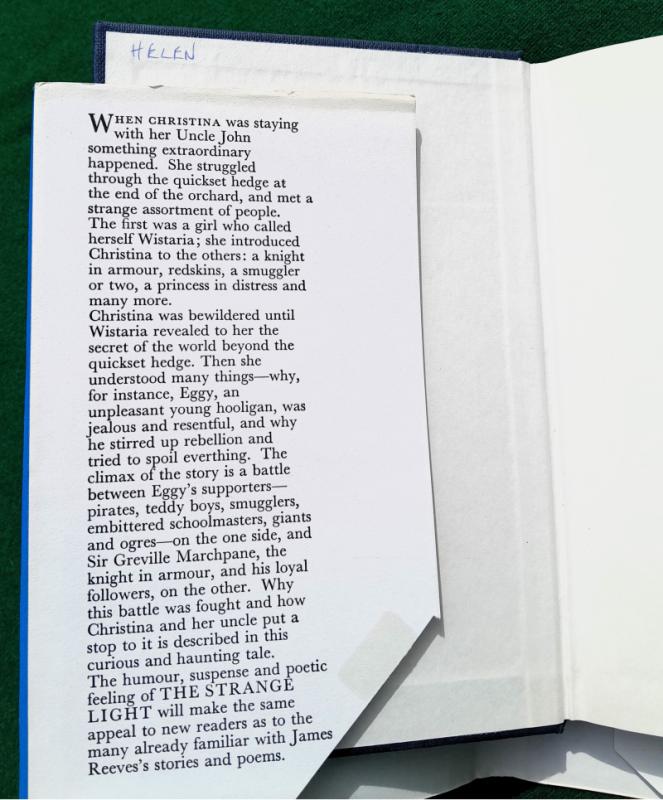 HELEN
WHEN CHRISTINA was staying
with her Uncle John
something extraordinary
happened. She struggled
through the quickset hedge at
the end of the orchard, and met a
strange assortment of people.
The first was a girl who called
herself Wistaria; she introduced
Christina to the others: a knight
in armour, redskins, a smuggler
or two, a princess in distress and
many more.
Christina was bewildered until
Wistaria revealed to her the
secret of the world beyond the
quickset hedge. Then she
understood many things—why,
for instance, Eggy, an
unpleasant young hooligan, was
jealous and resentful, and why
he stirred up rebellion and
tried to spoil everthing. The
climax of the story is a battle
between Eggy's supporters—
pirates, teddy boys, smugglers,
embittered schoolmasters, giants
and ogres—on the one side, and
Sir Greville Marchpane, the
knight in armour, and his loyal
followers, on the other. Why
this battle was fought and how
Christina and her uncle put a
stop to it is described in this
curious and haunting tale.
The humour, suspense and poetic
feeling of THE STRANGE
LIGHT will make the same
appeal to new readers as to the
many already familiar with James
Reeves's stories and poems.